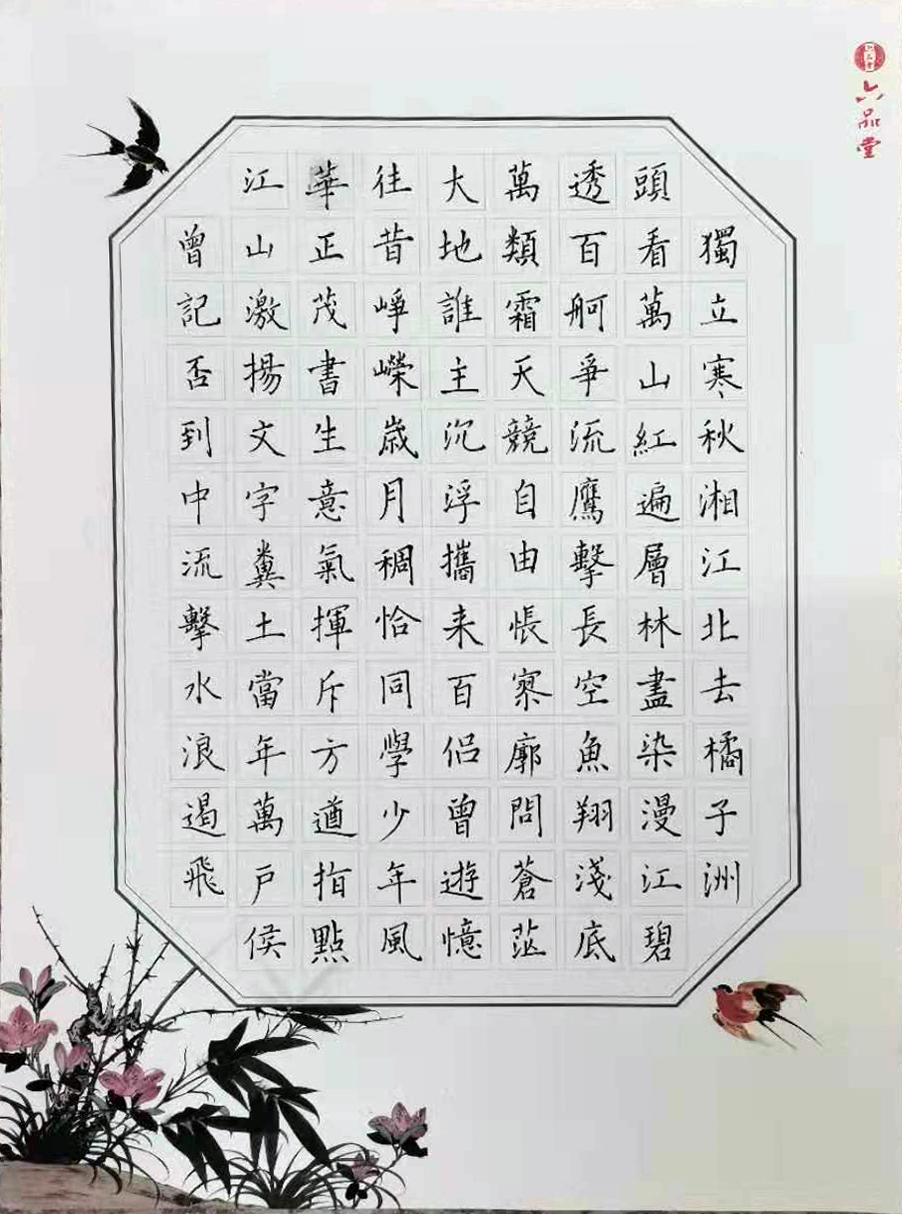 六品堂
獨立寒秋湘江北去橘子洲
頭看萬山紅遍層林盡染漫江碧
透百舸爭流鷹擊長空魚翔淺底
萬類霜天競自由悵寥廓問蒼茫
大地誰主沉浮攜来百侣曾遊憶
往昔崢嶸歲月稠恰同學少年風
華正茂書生意氣揮斥方遒指點
江山激揚文字糞土當年萬戶侯
曾記否到中流擊水浪遏飛